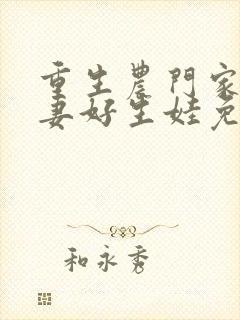 重生農門家
妻好生娃免
和永秀